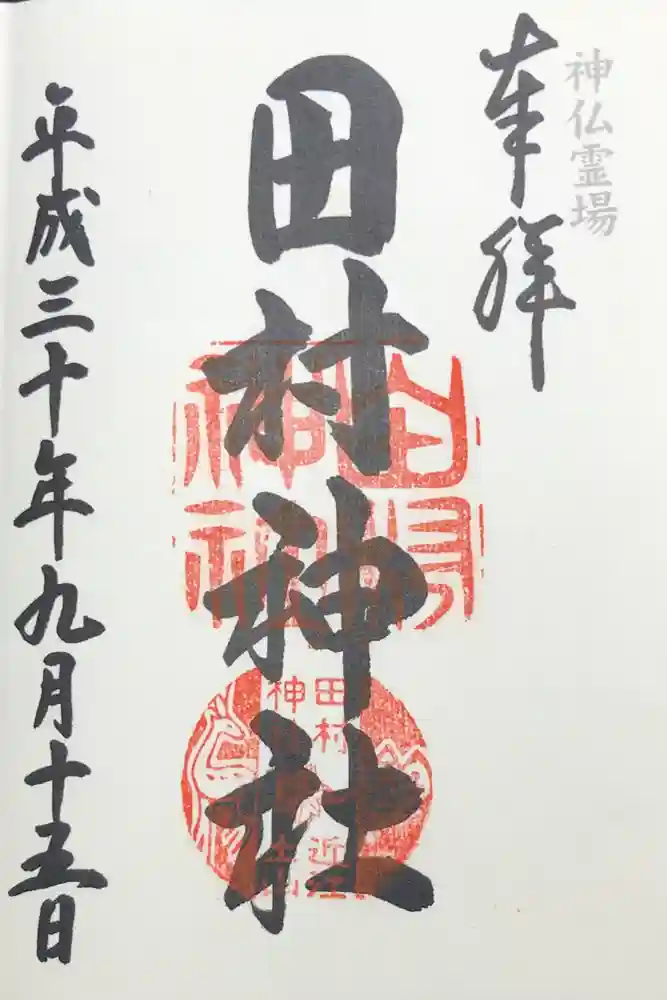 神仏霊場
奉拝
田村神社
田村
神社
田村
神
近江
土山
平成三十年九月十五日